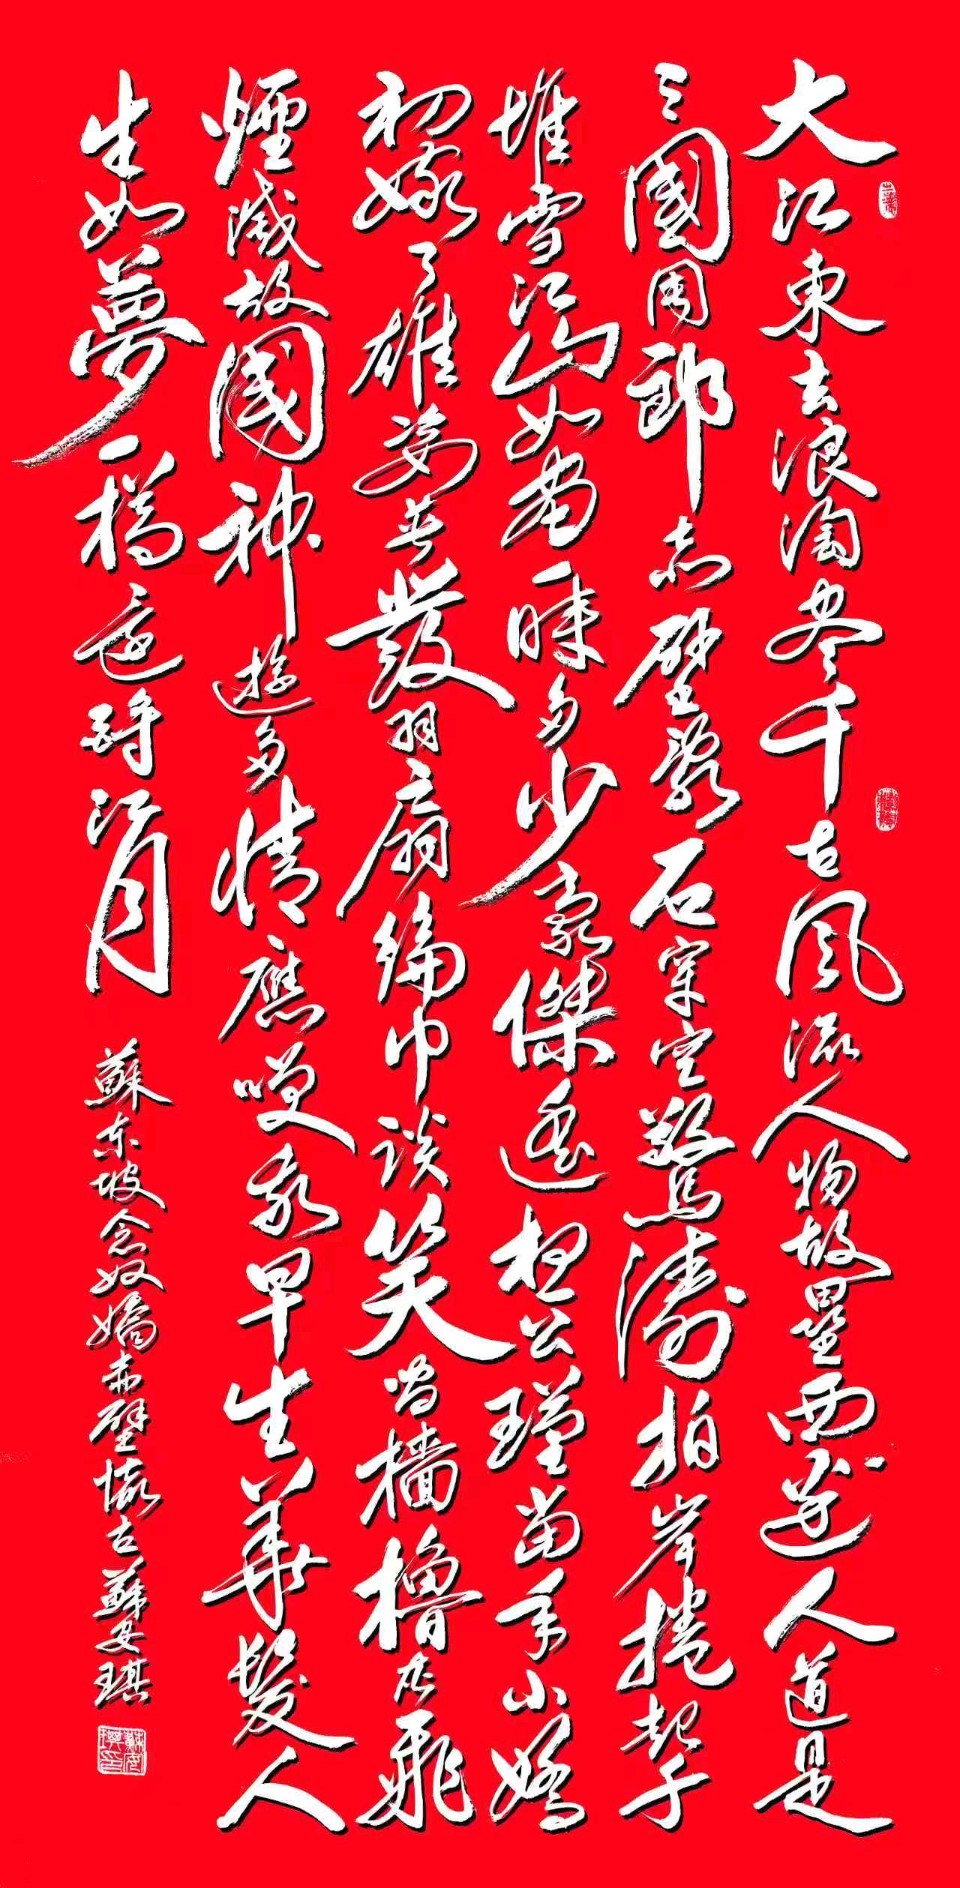 大江東去浪淘尽千古風流人物故壘西邊人道是
三國周郎赤壁亂石穿空驚濤拍岸捲起千
堆雪江山如畫一時多少豪傑遙想公瑾當年小嬌
初嫁了雄姿英發羽扇綸巾談笑間檣櫓灰飛
煙滅故國神遊多情應嘆我早生華髮人
生如夢一樽還酹江月
蘇東坡念奴嬌赤壁懷古蘇安琪